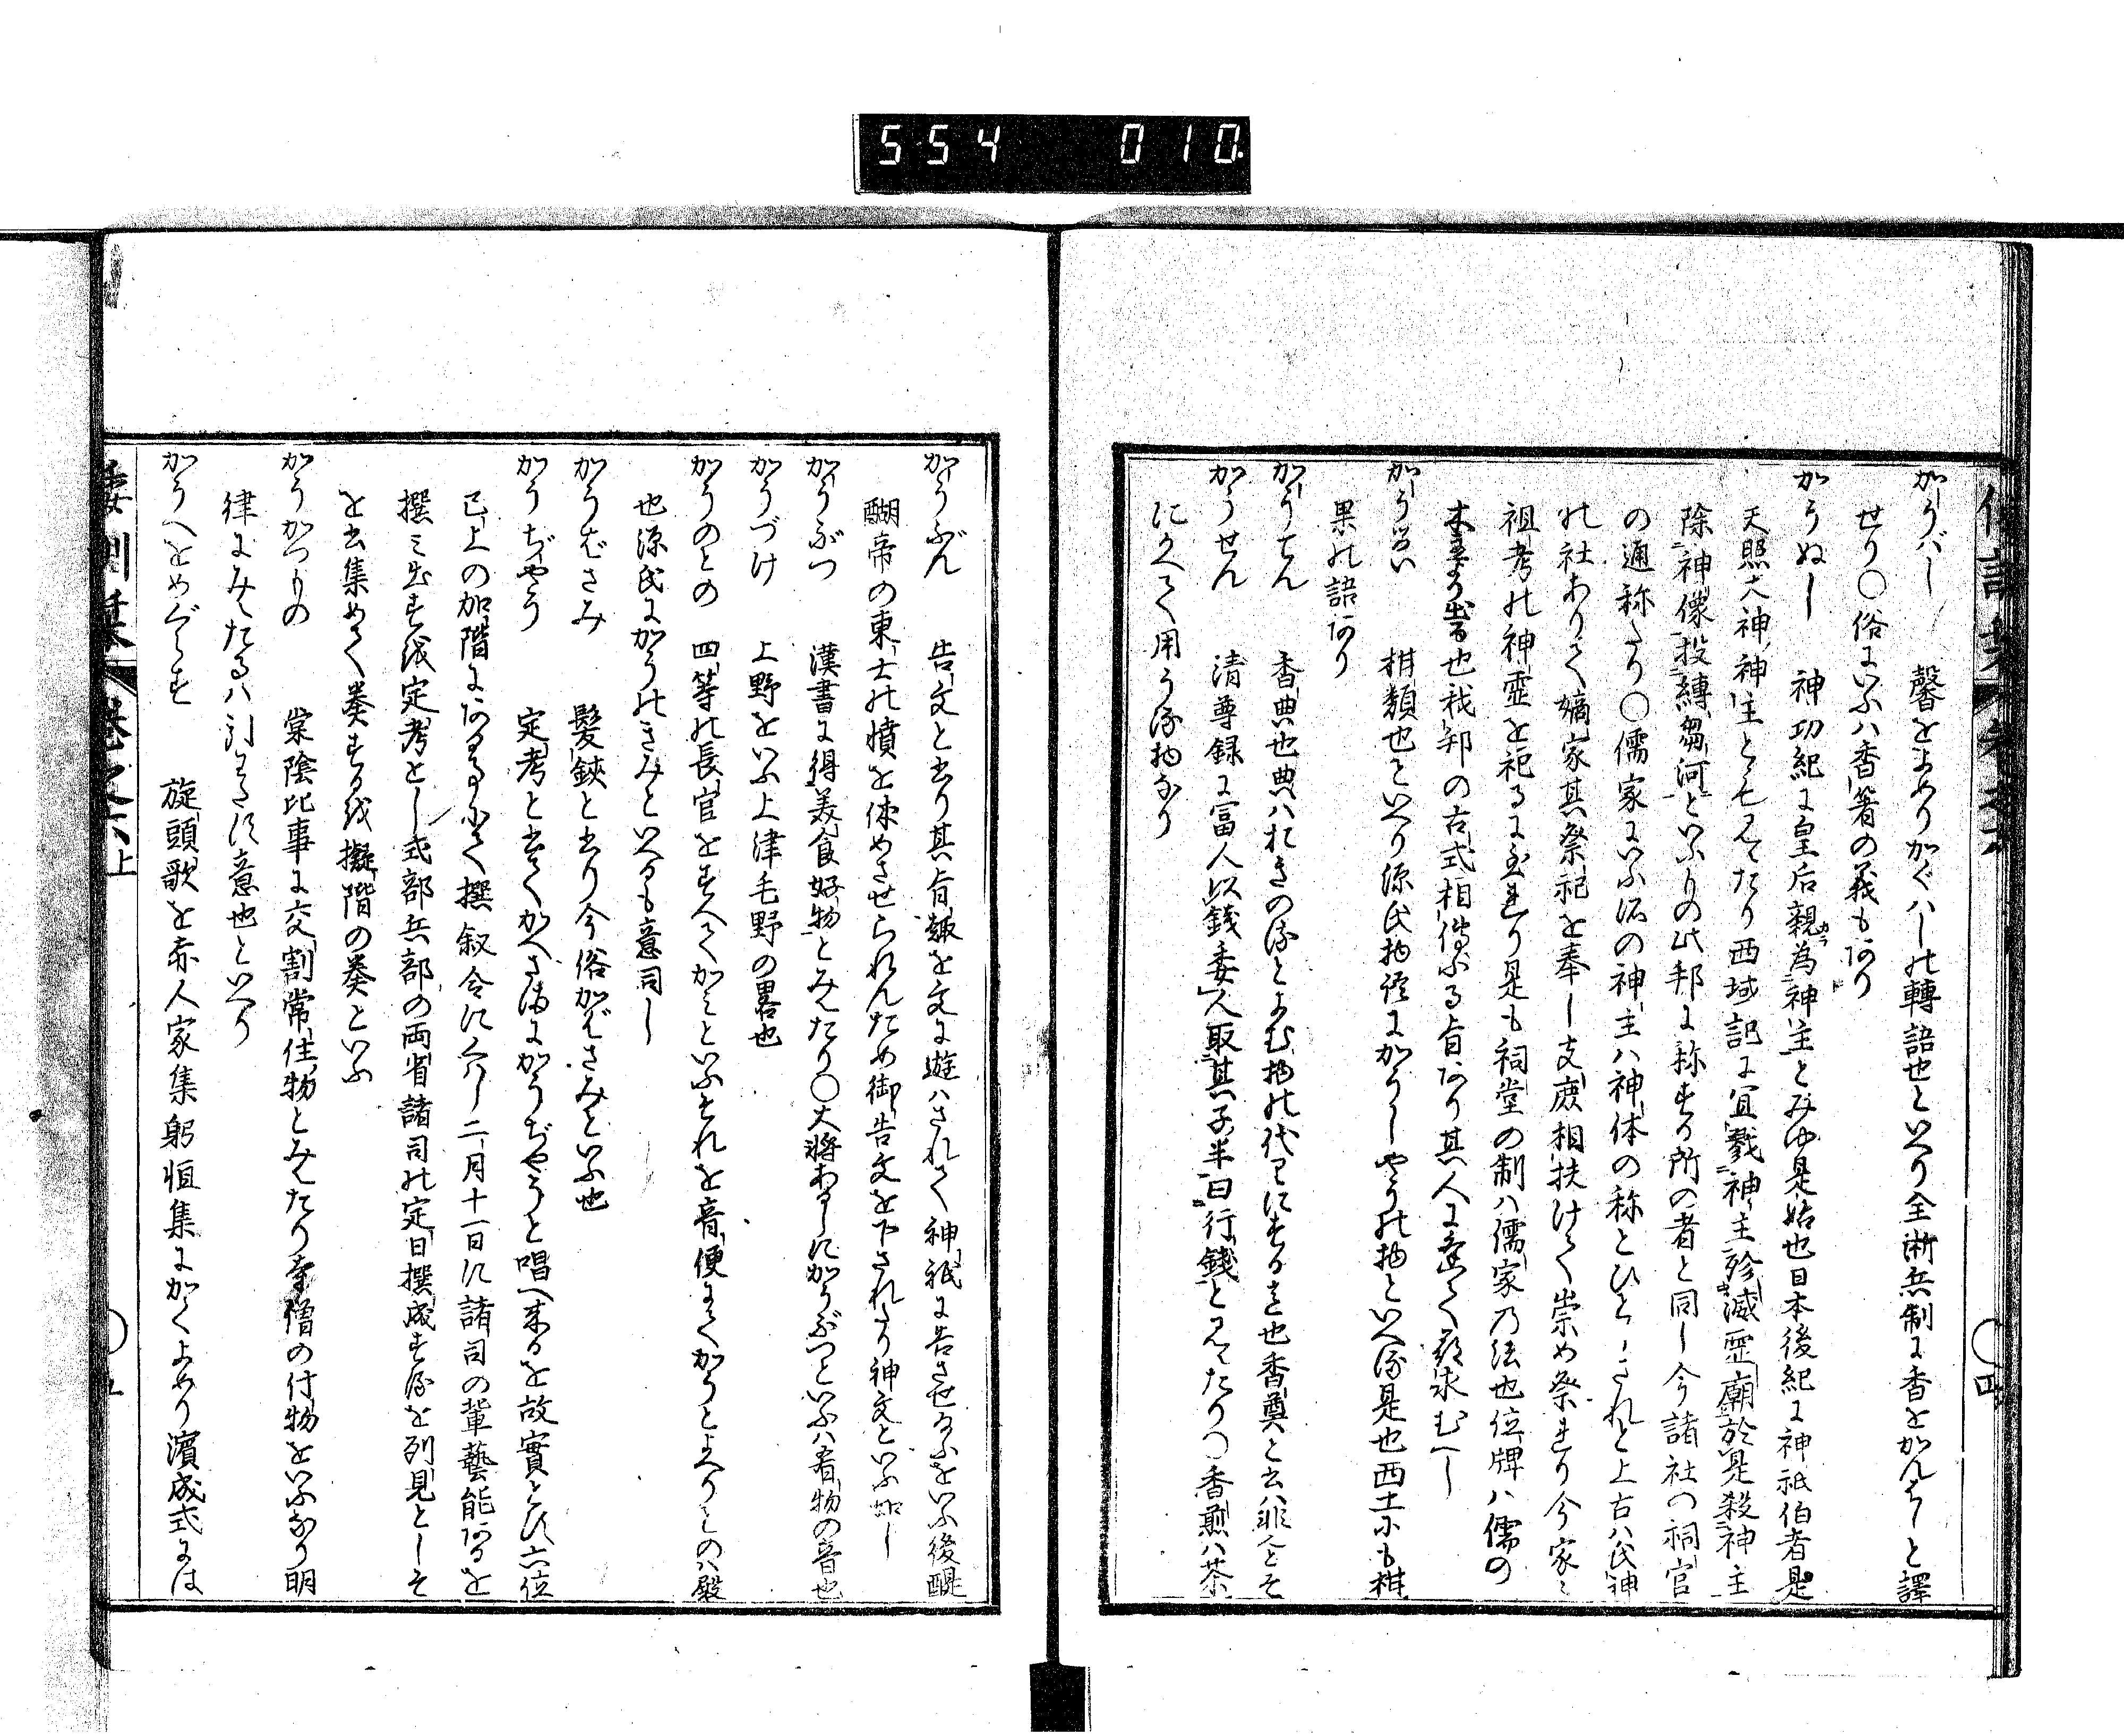 554 010
かうバし 馨をよめりかぐハしの轉語也といへり全浙兵制に香をかんばしと譯
せり○俗にいふハ香箸の義もあり
かうぬし 神功紀に皇后親為神主とみゆ是始也日本後紀に神祇伯者是
天照大神神主とも見えたり西域記に宜戮神主殄滅靈廟於是殺神主
除神像投縛芻河といふもの此邦に称する所の者と同し今諸社の祠官
の通称たり○儒家にいふ所の神主ハ神体の称とひとしされと上古ハ氏神
の社ありて嫡家其祭祀を奉し支庶相扶けて崇め祭れり今家々
祖考の神靈を祀るに至れり是も祠堂の制ハ儒家乃法也位牌ハ儒の
木主より出る也我邦の古式相傳ふる旨あり其人に逢て尋求むへし
かうるい 柑類也といへり源氏物語にかうしやうの物といへる是也西土にも柑
果の語あり
かうでん 香典也典ハおきのるとよむ物の代りにする意也香奠と書ハ非也とそ
かうせん 清尊録に富人以錢委人取其子半曰行錢と見えたり○香煎ハ茶
にかへて用うる物なり
倭訓栞
四
かうぶん 告文と書り其旨趣を文に遊ハされて神祇に告させ給ふをいふ後醍
醐帝の東士の憤を休めさせられんため御告文を下されたり神文といふ如し
かうぶつ 漢書に得美食好物とみえたり○大將あるしにかうぶつといふハ肴物の音也
かうづけ 上野をいふ上津毛野の畧也
かうのとの 四等の長官をすへてかミといふそれを音便にてかうとよへりとのハ殿
也源氏にかうのきみといへるも意同し
かうばさみ 髪鋏と書り今俗かばさみといふ也
かうぢやう 定考と書てかへさまにかうぢやうと唱へ来るを故實とす六位
已上の加階にあるる事にて撰叙令に今し二月十一日に諸司の輩藝能あるを
撰ミ出すを定考とし式部兵部の両省諸司の定日撰成するを列見としそ
を書集めて奏するを擬階の奏といふ
かうかつもの 棠陰比事に交割常住物とみえたり寺僧の付物をいふなり明
律にみえたるハ引わたす意也といへり
かうへをめぐらす 旋頭歌を赤人家集躬恒集にかくよめり濱成式には
倭訓栞 巻之六上
五